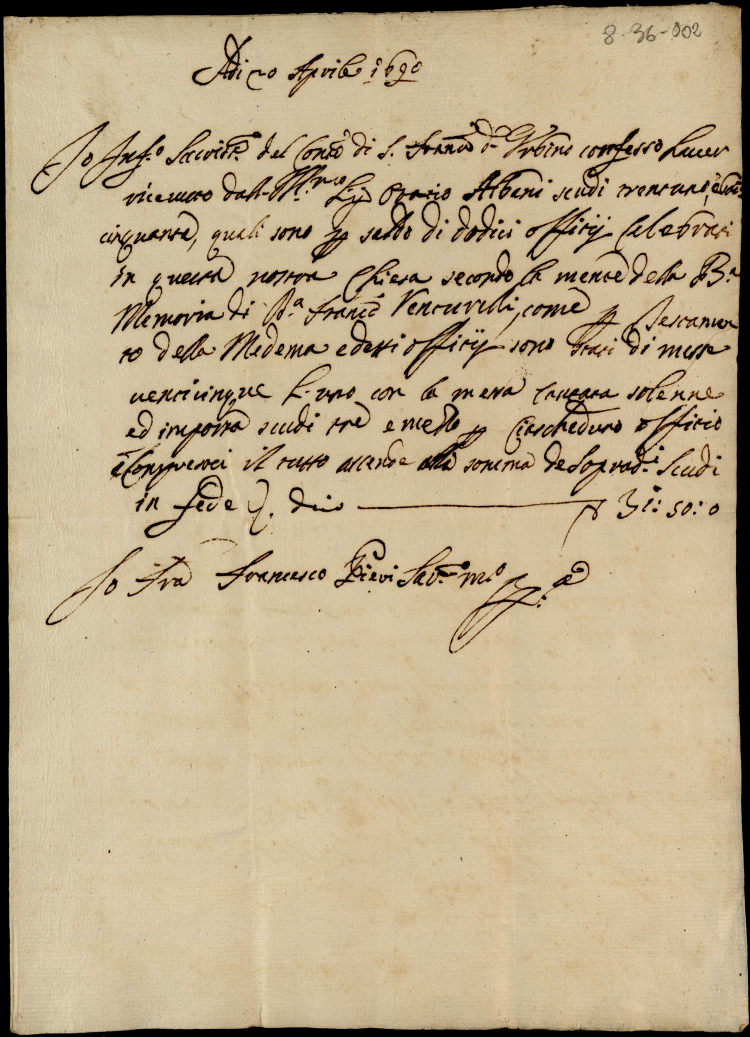 8-36-002
Adi 20 Aprile 1690
Io Infro Sacrist.o del Conto di S. Franco d' Urbino confesso haver
ricevuto dall' Ill.mo Sig Oratio Albani scudi trentuno, e b.
cinquanta, quali sono p saldo di dodici offitij Celebrati
in questa nostra Chiesa secondo la mente della B.a
Memoria di D.a Franc.a Venturelli, come p Testamen
to della Medema e detti offitij sono stati di messe
venticinque l'uno con la messa Cantata solenne
ed importa scudi tre e mezzo p ciascheduno offitio
e Compresoci il tutto ascende alla somma de Sopradi. Scudi
in fede q. dico 31: 50: 0
Io Fra Francesco Pievi Sac.no m.o pp.a